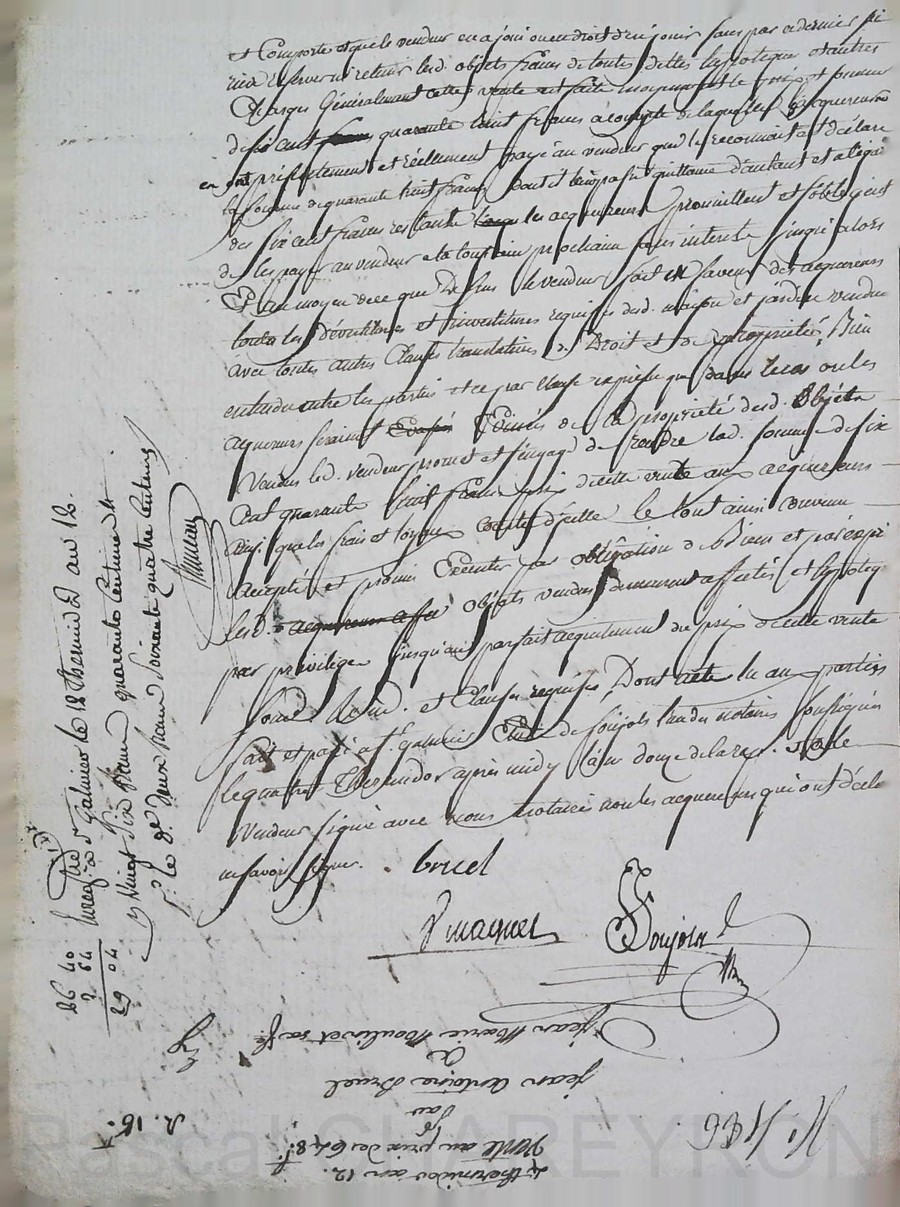 et Comporte et que le vendeur en a joui ou en droit d'en jouir sans par ce dernier si
rien reserver ni retenir lesd. objets francs de toutes dettes hypoteque et autres
Charges Généralement cette vente est faite moyenant le prix et somme
de six cent quarante huit francs acompte de laquelle les acquereurs
en ont présentement et réellement payé au vendeur qui le reconnait et déclare
la somme de quarante huit francs dont il leur passe quittance d'autant et a légard
des six cent francs restants les acquereurs promettent et s'obligent
de les payer au vendeur a la toussain prochaine sans interets jusqu'alors
Et au moyen de ce que Dessus le vendeur fait en faveur des acquereurs
toutes les Dévestitures et investitures requises desd. maison et jardin vendus
avec toutes autres Clauses translatives de Droit et de propriété, Bien
entendu entre les parties et ce par clause expresse que dans le cas ou les
aquereurs seraient Evincés de la propriété desd. Objets
Vendus led. vendeur promet et s'engage de rendre lad. somme de six
Cent quarante huit francs prix d'icelle vente aux acquereurs
ainsi que les frais et loyaux Coutes d'icelle le tout ainsi convenu
accepté et promis Exécuter par obligation de Biens et par exprès
lesd. objets vendus demeurent affectés et hypoteq
par privilège jusqu'au parfait acquittement du prix d'icelle vente
et Clauses requises, Dont acte lu aux parties
fait et passé a St galmier Etude de Soujols l'un des notaires soussignés
le quatre Thermidor après midy l'an douze de la rep. et a le
Vendeur signé avec nous Notaires non les acquereurs qui ont déclé
ne savoir signer. bruel
Soujols
Enregé à St Galmier le 12 Thermid an 12.
Vingt Six francs quarante Centimes
le d. deux francs Soixante quatre Centimes
26 40
2 64
29 04
4 thermidor an 12.
Vente au prix de 648 f
par
jean Antoine Bruel
a
jean Marie Moulin et sa fe
R. 15 f
N. 186
Pascal CHAREYRON